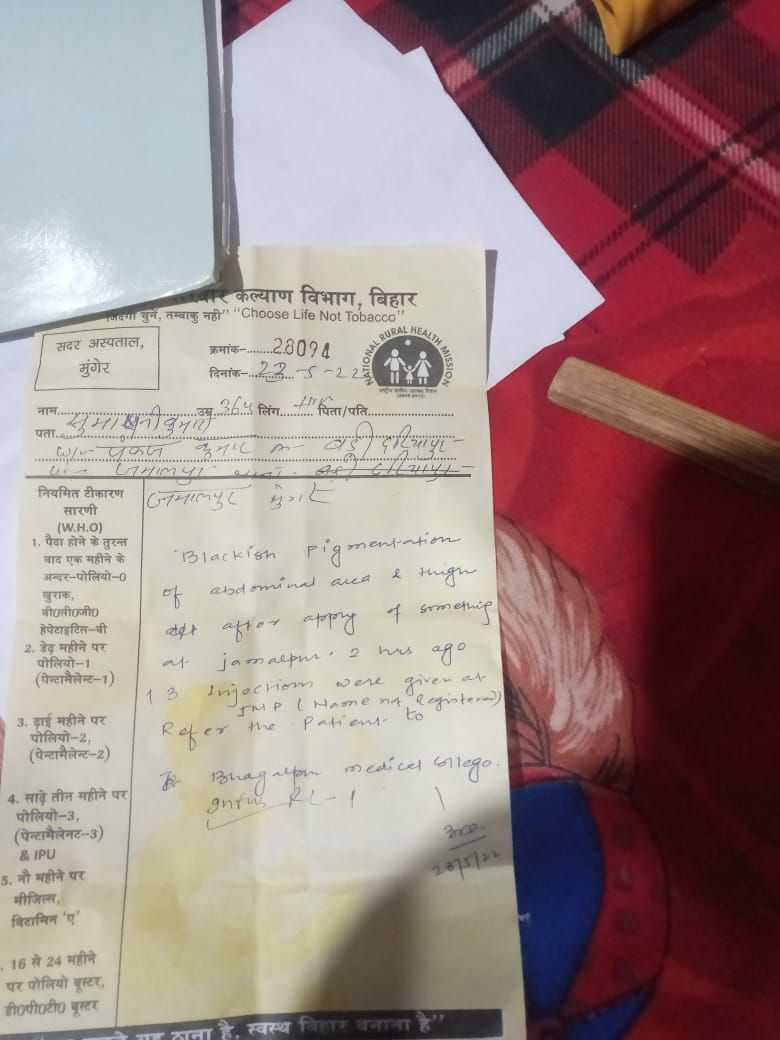 कल्याण विभाग, बिहार
जिंदगी चुनें, तम्बाकु नहीं" "Choose Life Not Tobacco"
सदर अस्पताल,
मुंगेर
क्रमांक-........28094
दिनांक-....23-5-22
NATIONAL RURAL HEALTH MISSION
नाम.....उम्र 36y लिंग.....पिता/पति.....
पता
पंकज कुमार बड़ी दरियापुर
जमालपुर
जमालपुर मुंगेर
नियमित टीकारण
सारणी
(W.H.O)
1. पैदा होने के तुरन्त
बाद एक महीने के
अन्दर-पोलियो-0
खुराक,
बी०सी०जी०
हेपेटाइटिस-बी
2. डेढ़ महीने पर
पोलियो-1
(पेन्टामैलेन्ट-1)
3. ढ़ाई महीने पर
पोलियो-2,
(पेन्टामैलेन्ट-2)
4. साढ़े तीन महीने पर
पोलियो-3,
(पेन्टामैलेनट-3)
& IPU
5. नौ महीने पर
मीजिल्स,
विटामिन 'ए'
. 16 से 24 महीने
पर पोलियो बूस्टर,
डी0पी0टी0 बूस्टर
Blackish Pigmentation
of abdominal area & thigh
after apply of something
at jamalpur. 2 hrs ago
3 Injections were given at
JMP (Name not Registered)
Refer the Patient to
Bhagalpur medical college.
RL-1
23/5/22
ठाना है, स्वस्थ बिहार बनाना है"